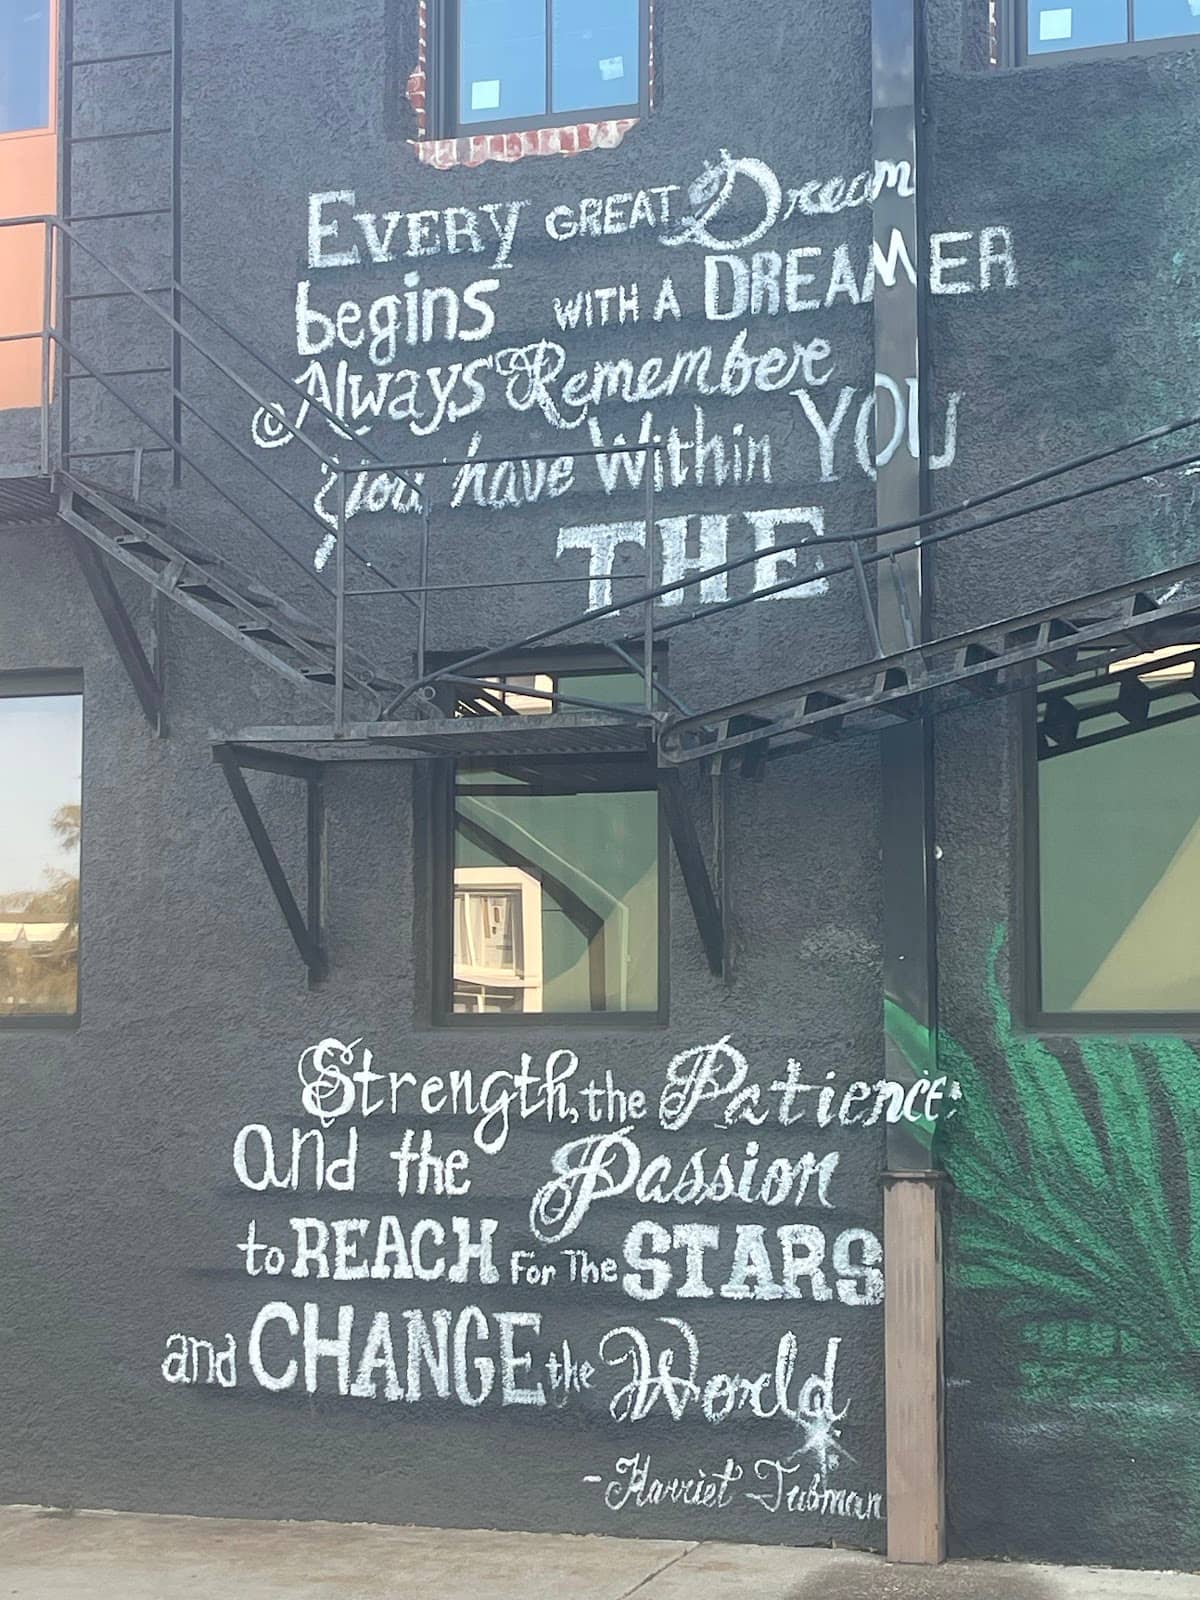 EVERY GREAT Dream
begins WITH A DREAMER
Always Remember
you have Within YOU
THE
Strength, the Patience,
and the Passion
to REACH For The STARS
and CHANGE the World
- Harriet Tubman